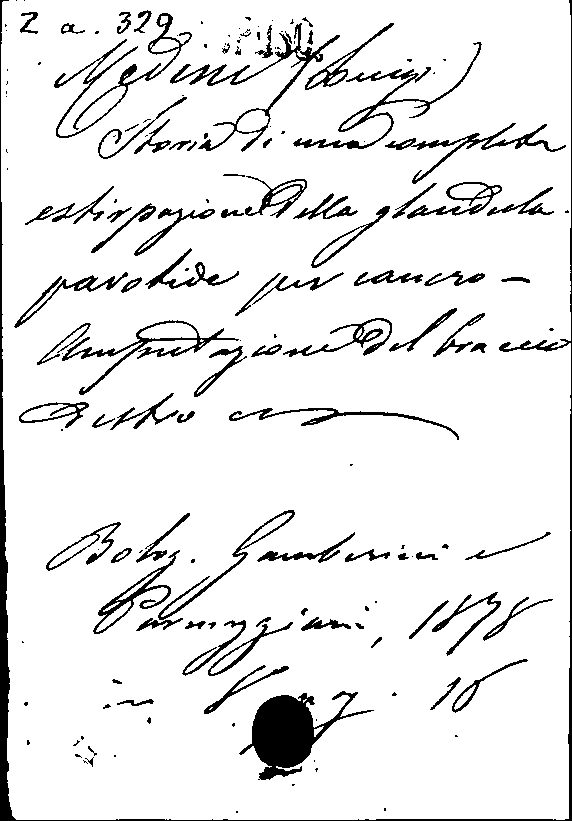 Z a. 329
Medini (Luigi)
Storia di una completa
estirpazione della glandula
parotide per cancro –
Amputazione del braccio
destro
Bolog. Gamberini e
Parmeggiani, 1878
in 8° pag. 16